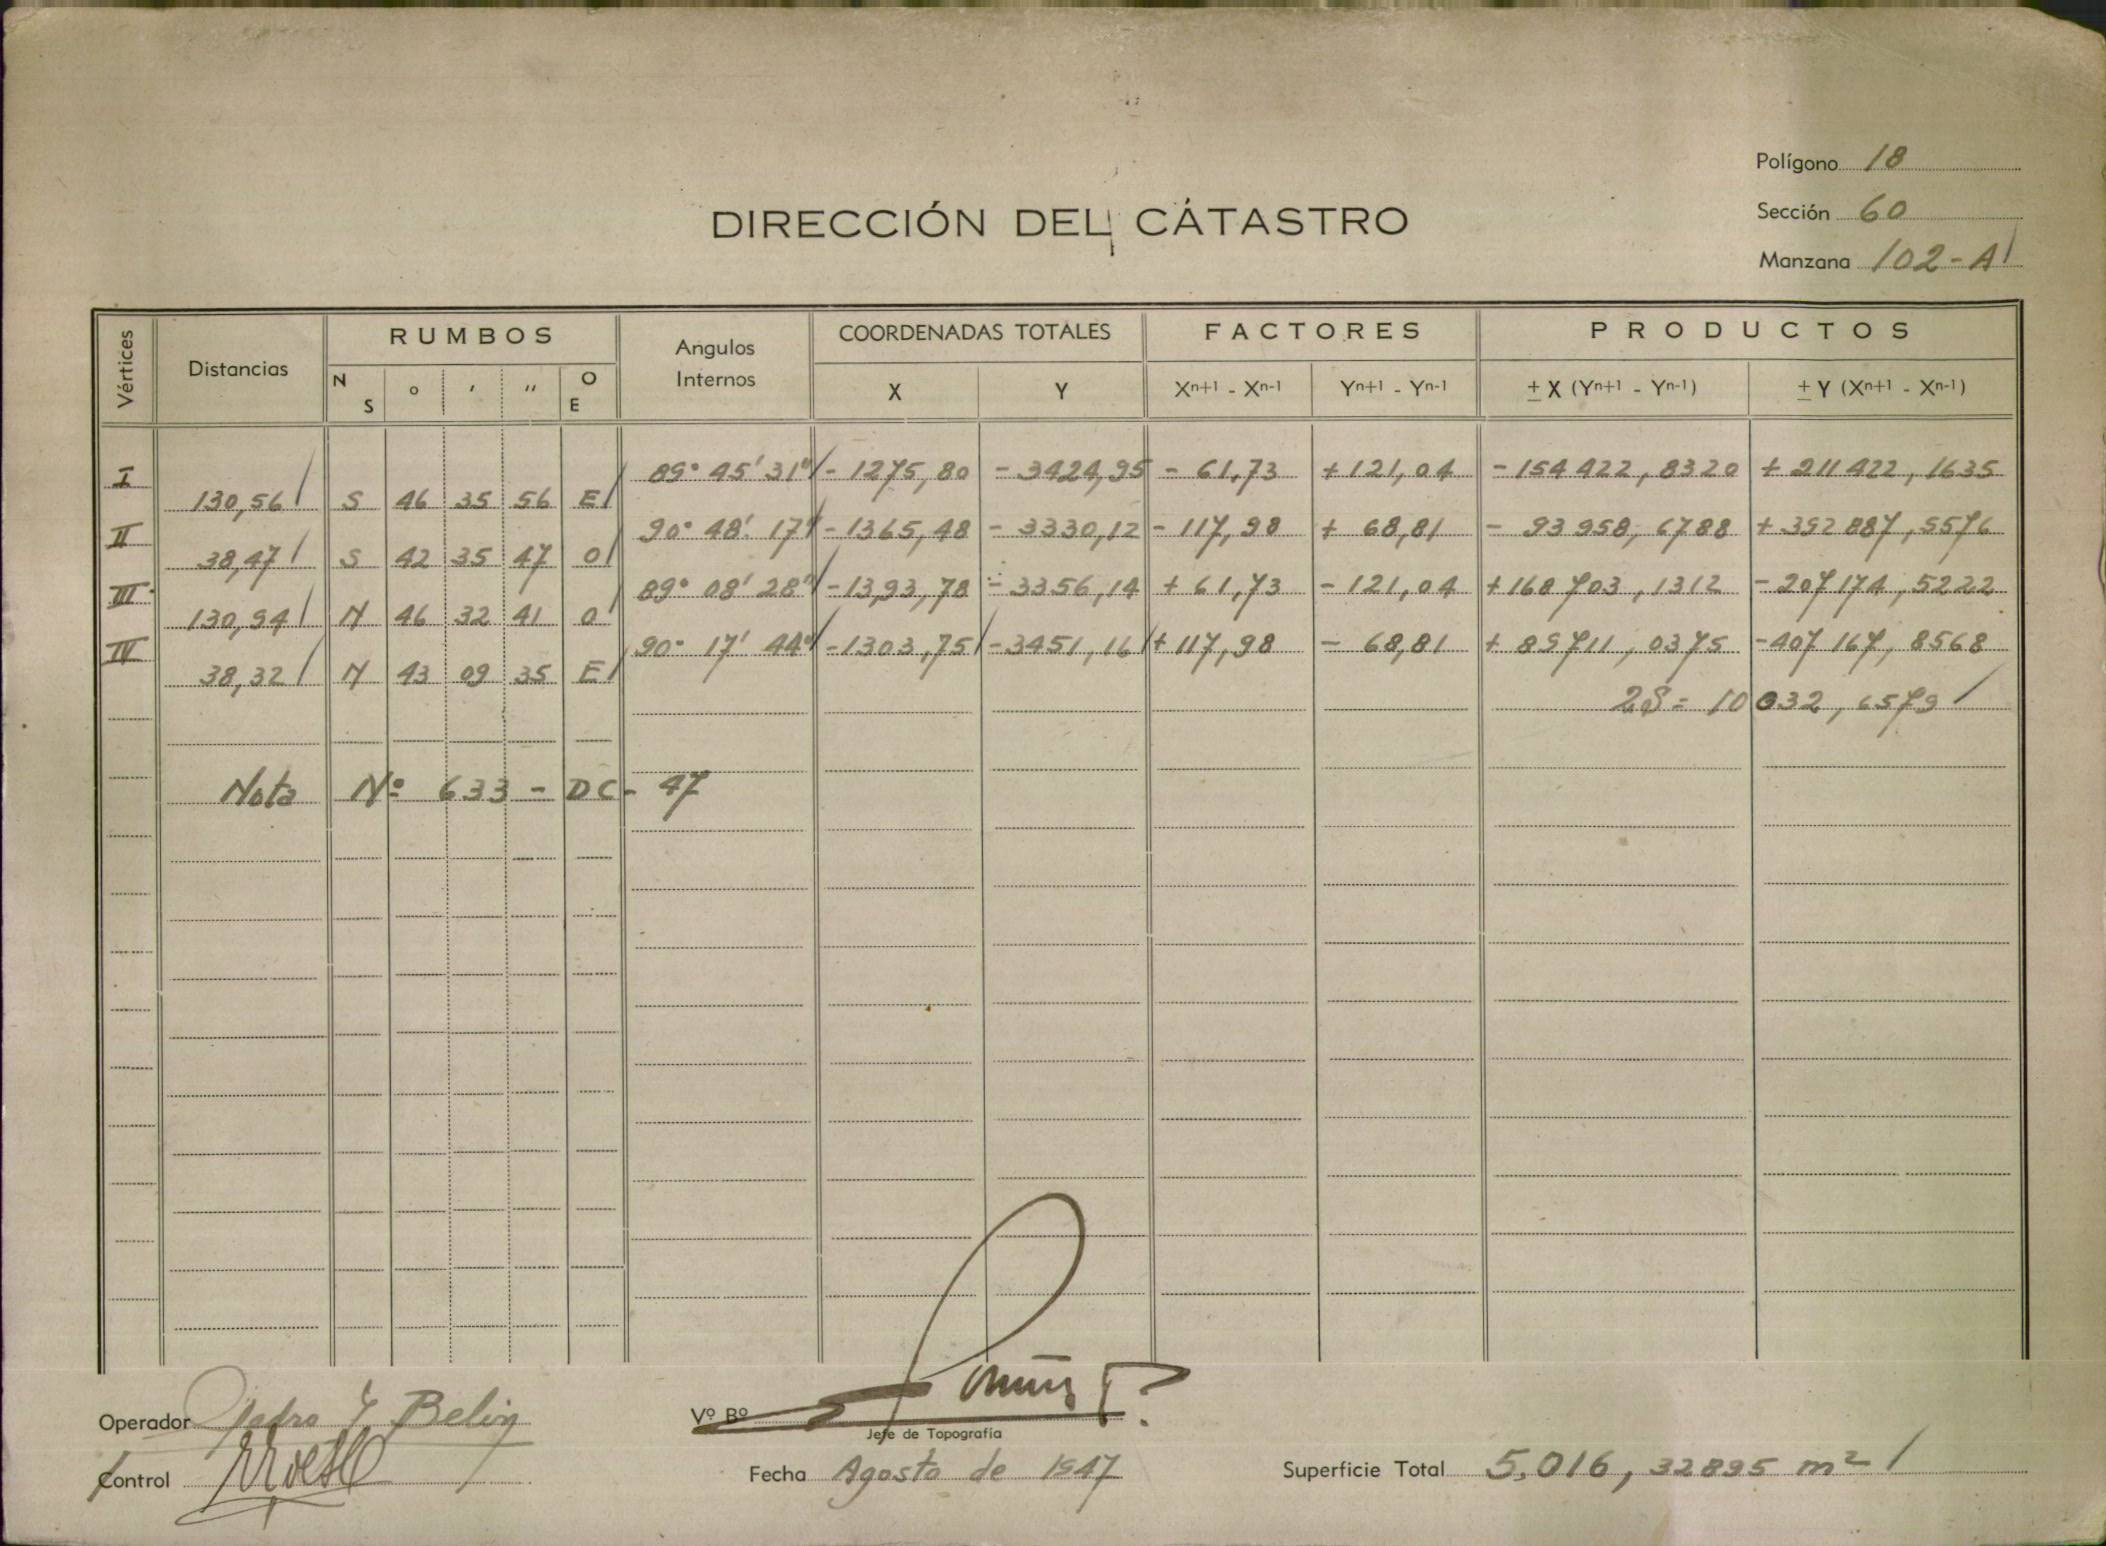 Polígono 18
DIRECCIÓN DEL CATASTRO
Sección 60
Manzana 102-A
Vértices
Distancias
RUMBOS
N S ° ' '' O E
Angulos Internos
COORDENADAS TOTALES
X Y
FACTORES
Xn+1 - Xn-1 Yn+1 - Yn-1
PRODUCTOS
± X (Yn+1 - Yn-1) ± Y (Xn+1 - Xn-1)
I 89° 45' 31" - 1275,80 - 3424,95 - 61,73 + 121,04 - 154422,8320 + 211422,1635
130,56 S 46 35 56 E
II 90° 48' 17" - 1365,48 - 3330,12 - 117,98 + 68,81 - 93958,6788 + 392887,5576
38,47 S 42 35 47 O
III 89° 08' 28" - 1393,78 - 3356,14 + 61,73 - 121,04 + 168703,1312 - 207174,5222
130,94 N 46 32 41 O
IV 90° 17' 44" - 1303,75 - 3451,16 + 117,98 - 68,81 + 89711,0375 - 407167,8568
38,32 N 43 09 35 E
2S = 10032,6579
Nota Nº 633 - DC - 47
Operador Pedro Y Belin
Vº Bº
Jefe de Topografía
Control
Fecha Agosto de 1947
Superficie Total 5,016,32895 m²